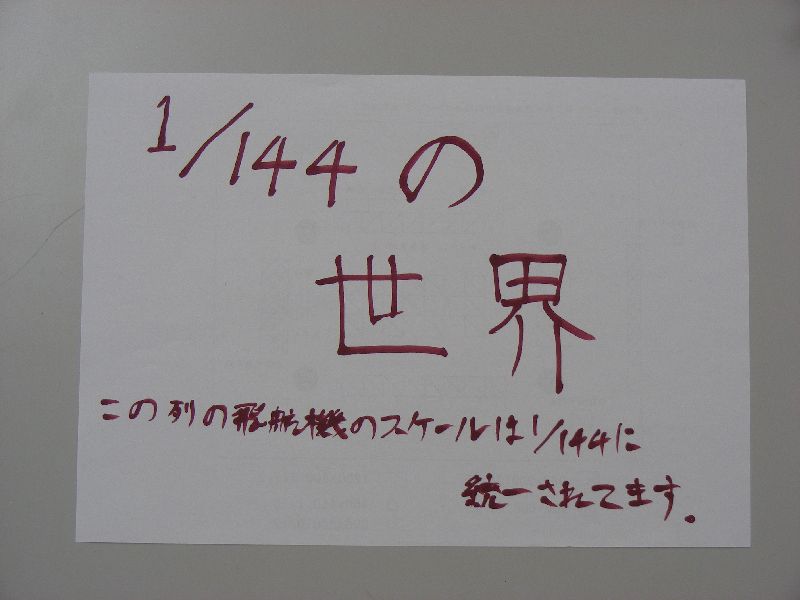 1/144の
世界
この列の飛航機のスケールは1/144に
統一されてます.